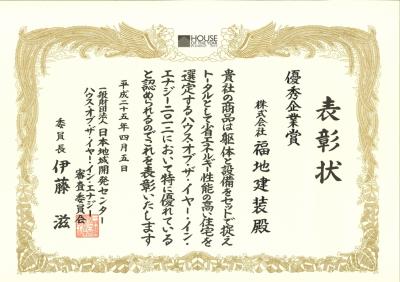 HOUSE
OF THE YEAR
表彰状
優秀企業賞
株式会社 福地建装 殿
貴社の商品は躯体と設備をセットで捉え
トータルとして省エネルギー性能の高い住宅を
選定するハウス・オブ・ザ・イヤー・イン・
エナジー二〇一二において特に優れている
と認められるのでこれを表彰いたします
平成二十五年四月五日
一般財団法人 日本地域開発センター
ハウス・オブ・ザ・イヤー・イン・エナジー
審査委員会
委員長 伊藤 滋